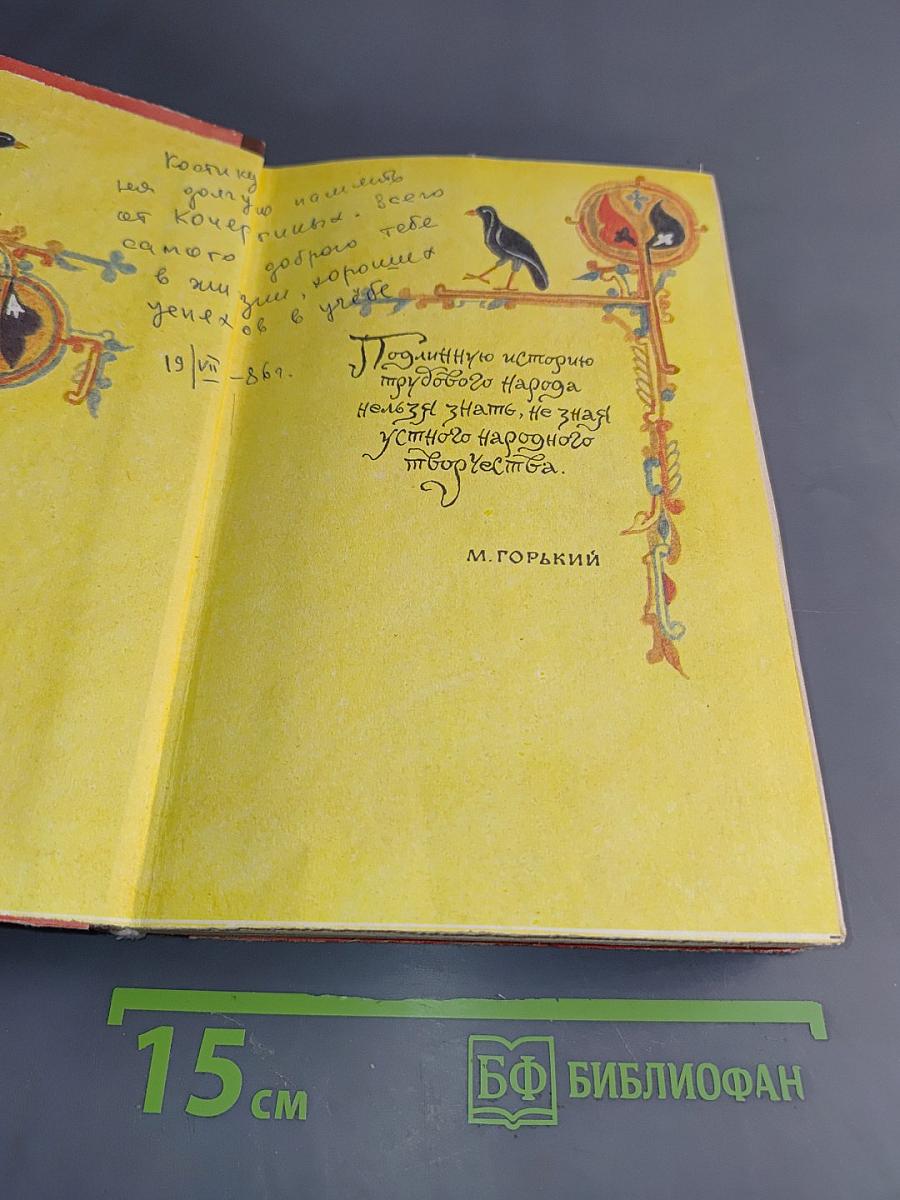 Костику
на долгую память
от Кочергиных. Всего
самого доброго тебе
в жизни, хороших
успехов в учёбе
19/VII-86г.
Подлинную историю
трудового народа
нельзя знать, не зная
устного народного
творчества.
М. ГОРЬКИЙ
15 см
БФ БИБЛИОФАН